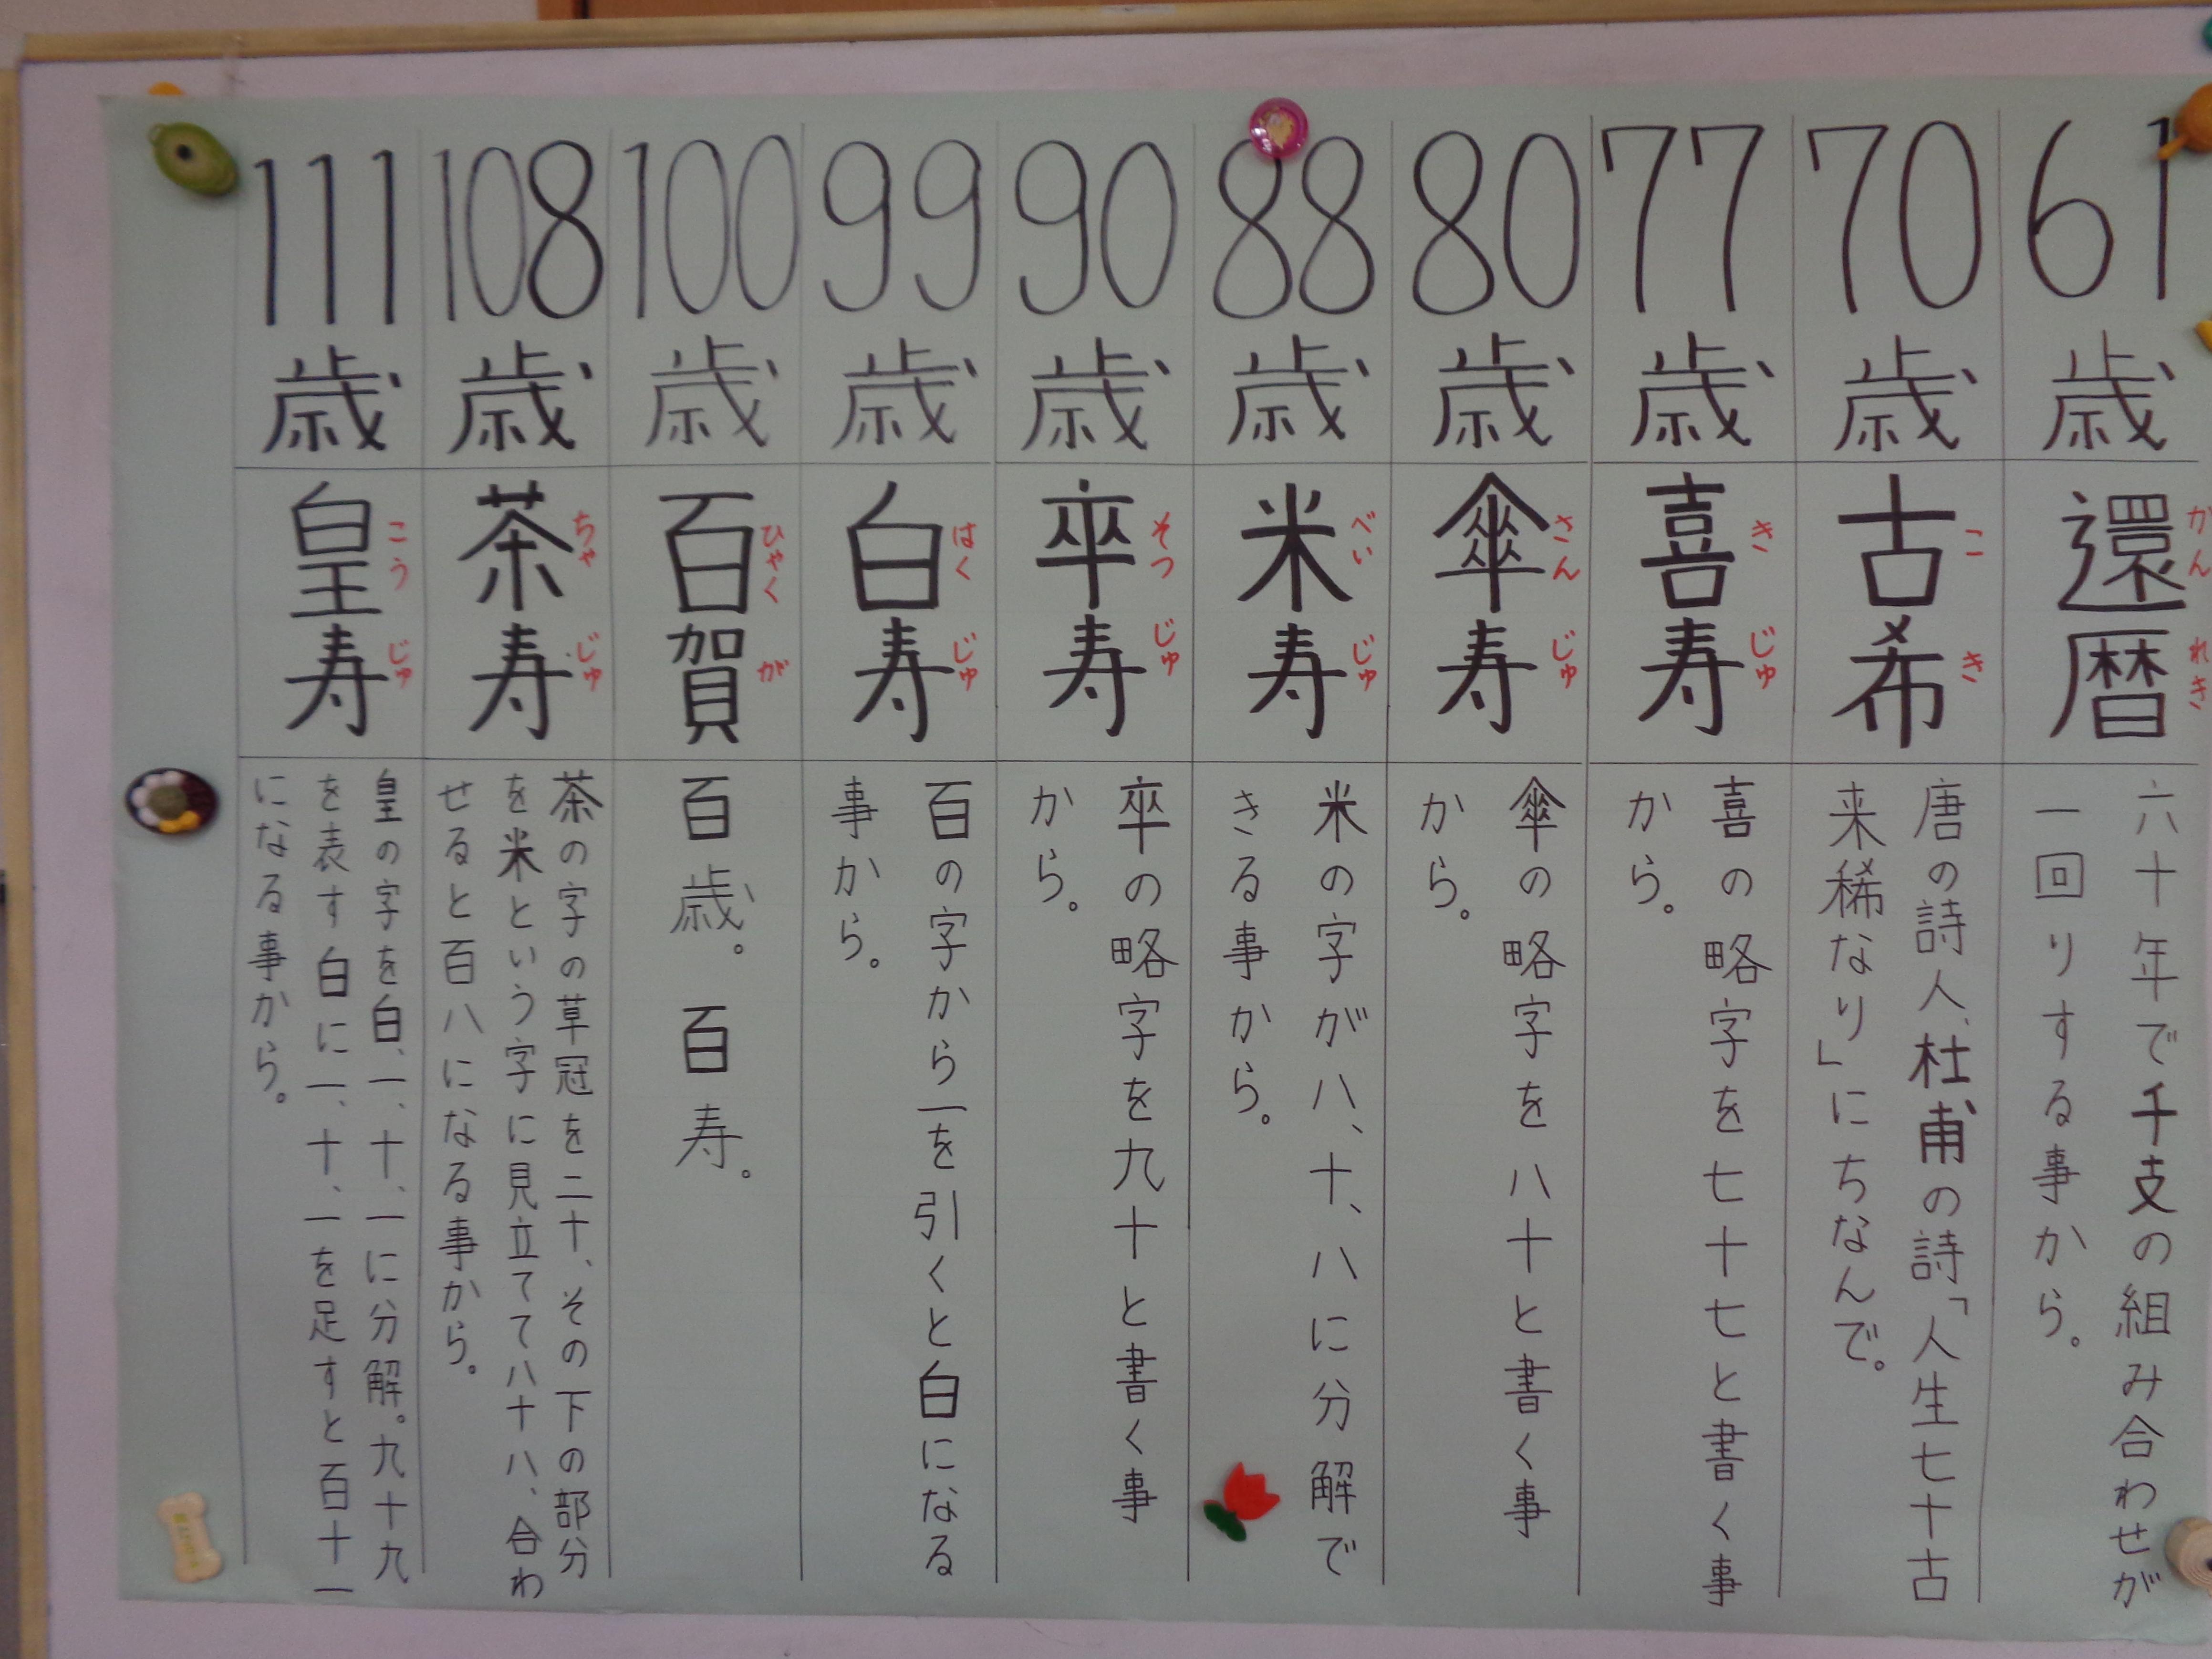 61歳
還暦
かんれき
六十年で干支の組み合わせが
一回りする事から。
70歳
古希
こき
唐の詩人、杜甫の詩「人生七十古
来稀なり」にちなんで。
77歳
喜寿
きじゅ
喜の略字を七十七と書く事
から。
80歳
傘寿
さんじゅ
傘の略字を八十と書く事
から。
88歳
米寿
べいじゅ
米の字が八、十、八に分解で
きる事から。
90歳
卒寿
そつじゅ
卒の略字を九十と書く事
から。
99歳
白寿
はくじゅ
百の字から一を引くと白になる
事から。
100歳
百賀
ひゃくが
百歳。百寿。
108歳
茶寿
ちゃじゅ
茶の字の草冠を二十、その下の部分
を米という字に見立てて八十八、合わ
せると百八になる事から。
111歳
皇寿
こうじゅ
皇の字を白、一、十、一に分解。九十九
を表す白に一、十、一を足すと百十一
になる事から。